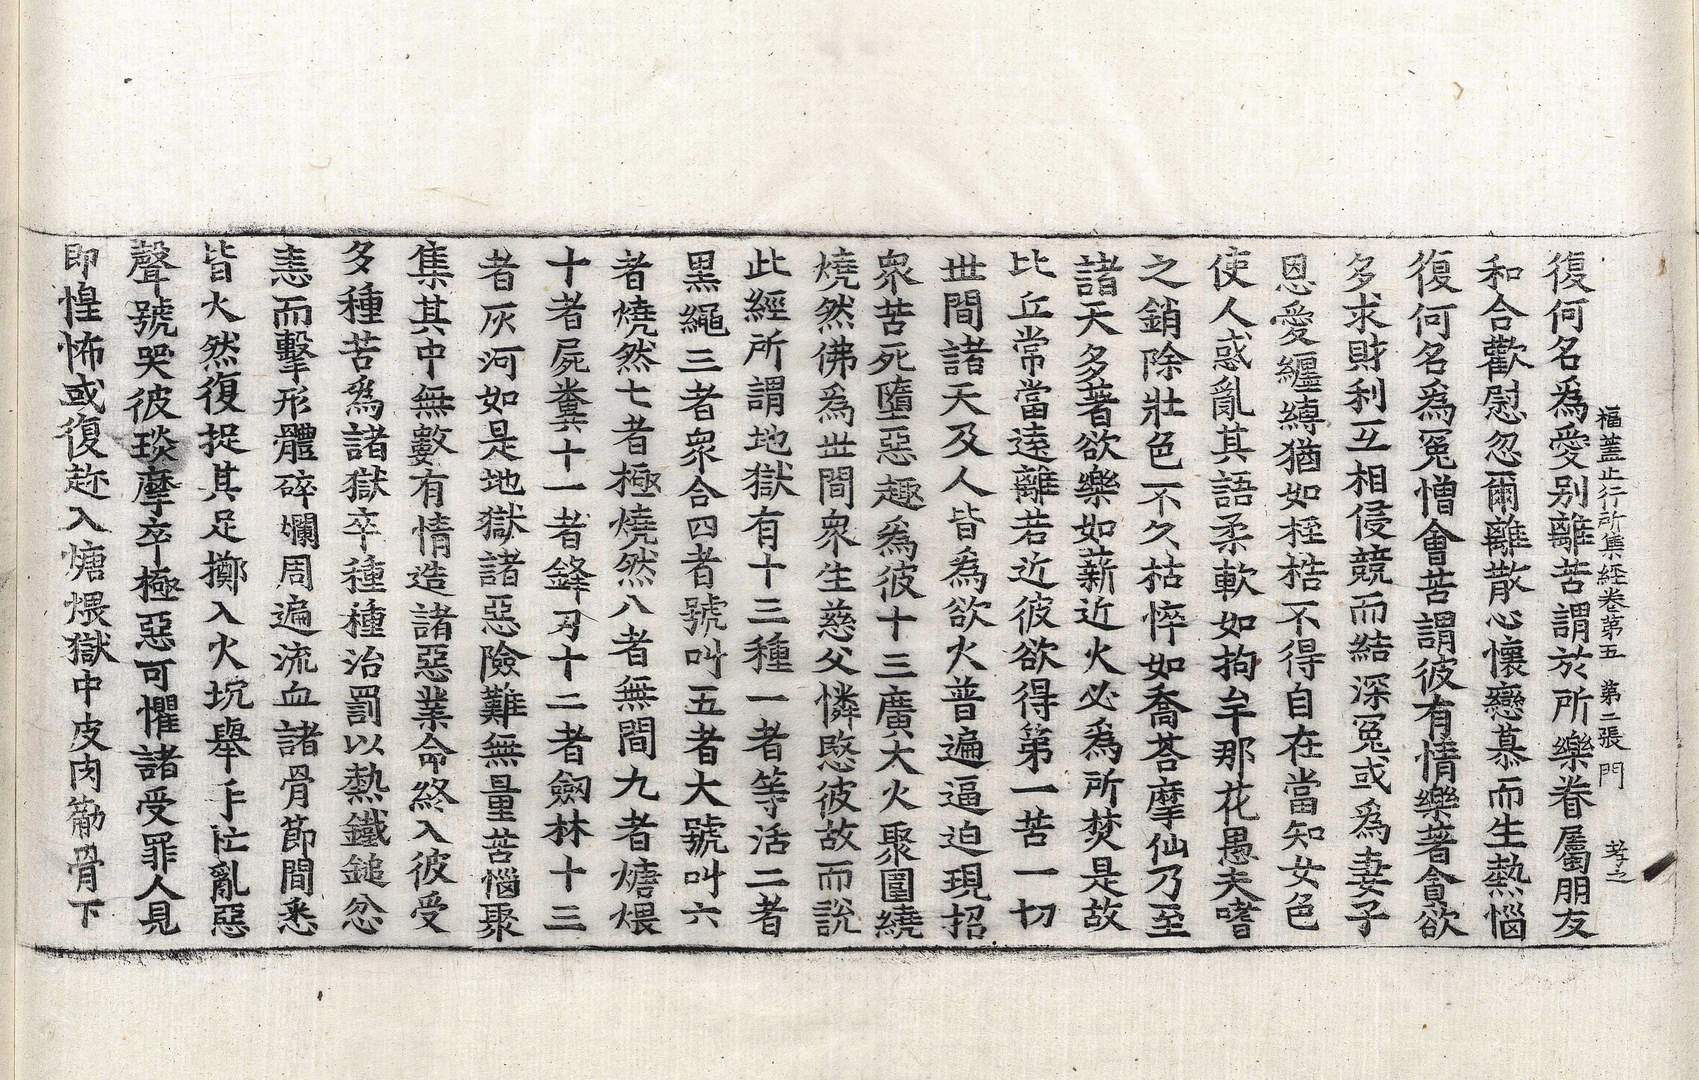 福蓋正行所集經卷第五　第二張　門　孝之
復何名爲愛別離苦謂於所樂眷屬朋友
和合歡慰忽爾離散心懷戀慕而生熱惱
復何名爲冤憎會苦謂彼有情樂著貪欲
多求財利互相侵競而結深冤或爲妻子
恩愛纏縛猶如桎梏不得自在當知女色
使人惑亂其語柔軟如拘牟那花愚夫嗜
之銷除壯色不久枯悴如喬荅摩仙乃至
諸天多著欲樂如薪近火必爲所焚是故
比丘常當遠離若近彼欲得第一苦一切
世間諸天及人皆爲欲火普遍逼迫現招
衆苦死墮惡趣爲彼十三廣大火聚圍繞
燒然佛爲世間衆生慈父憐愍彼故而說
此經所謂地獄有十三種一者等活二者
黑繩三者衆合四者號叫五者大號叫六
者燒然七者極燒然八者無間九者煻煨
十者屍糞十一者鋒刃十二者劒林十三
者灰河如是地獄諸惡險難無量苦惱聚
集其中無數有情造諸惡業命終入彼受
多種苦爲諸獄卒種種治罰以熱鐵鎚忿
恚而擊形體碎爛周遍流血諸骨節間悉
皆火然復捉其足擲入火坑舉手忙亂惡
聲號哭彼琰摩卒極惡可懼諸受罪人見
即惶怖或復趂入煻煨獄中皮肉䈥骨下